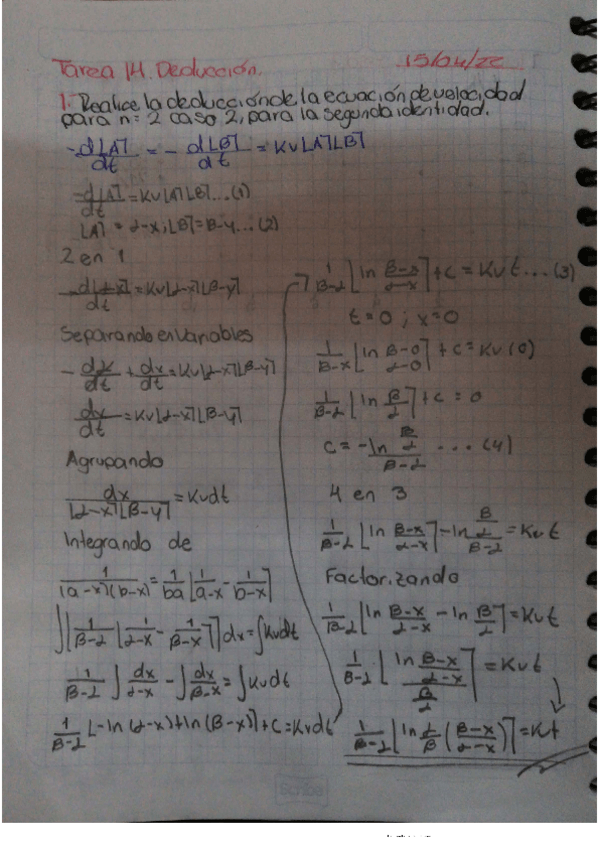 Tarea 14. Deducción.
15/04/22
1. Realice la deducción de la ecuación de velocidad
para n=2 caso 2, para la segunda identidad.
-d[A]/dt = -d[B]/dt = Kv[A][B]
-d[A]/dt = Kv[A][B]...(1)
[A] = α-x; [B]=β-y...(2)
2 en 1
-d[α-x]/dt = Kv[α-x][β-y]
Separando en variables
-dα/dt + dx/dt = Kv[α-x][β-y]
dx/dt = Kv[α-x][β-y]
Agrupando
dx/[α-x][β-y] = Kvdt
Integrando de
1/(a-x)(b-x) = 1/ba [1/a-x - 1/b-x]
∫[1/β-α [1/α-x - 1/β-x]] dx = ∫Kvdt
1/β-α ∫dx/α-x - ∫dx/β-x = ∫Kvdt
1/β-α [-ln(α-x)+ln(β-x)]+C = Kvdt
1/β-α [ln β-x/α-x]+C = Kvt...(3)
t=0 ; x=0
1/β-x [ln β-0/α-0]+C = Kv(0)
1/β-α [ln β/α]+C = 0
C = -ln β/α / β-α ...(4)
4 en 3
1/β-α [ln β-x/α-x] - ln β/α / β-α = Kvt
Factorizando
1/β-α [ln β-x/α-x - ln β/α] = Kvt
1/β-α · [ln β-x/α-x / β/α] = Kvt
1/β-α [ln α/β (β-x/α-x)] = Kvt
Scribe